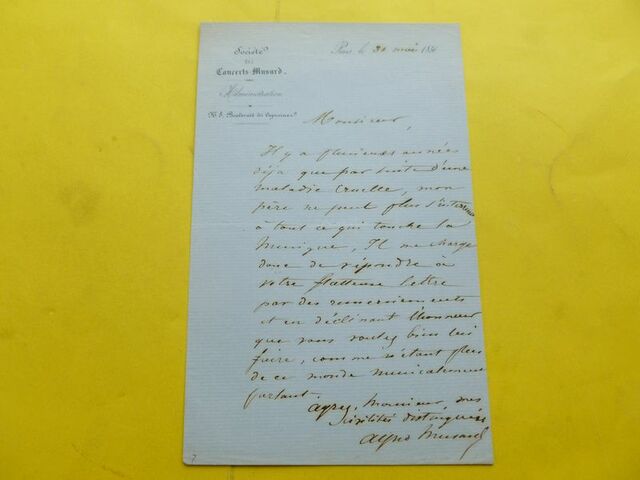 Société
DES
Concerts-Musard.
Administration
N° 8, Boulevart des Capucines
Paris, le 31 mai 185
Monsieur,
Il y a plusieurs années
déja que par suite d'une
maladie cruelle, mon
père ne peut plus s'intéresser
à tout ce qui touche la
musique, Il me charge
donc de répondre à
votre flatteuse lettre
par des remerciements
et en déclinant l'honneur
que vous voulez bien lui
faire, comme n'étant plus
de ce monde musicalement
parlant.
agréez, Monsieur, mes
civilités distinguées
Alfred Musard
7